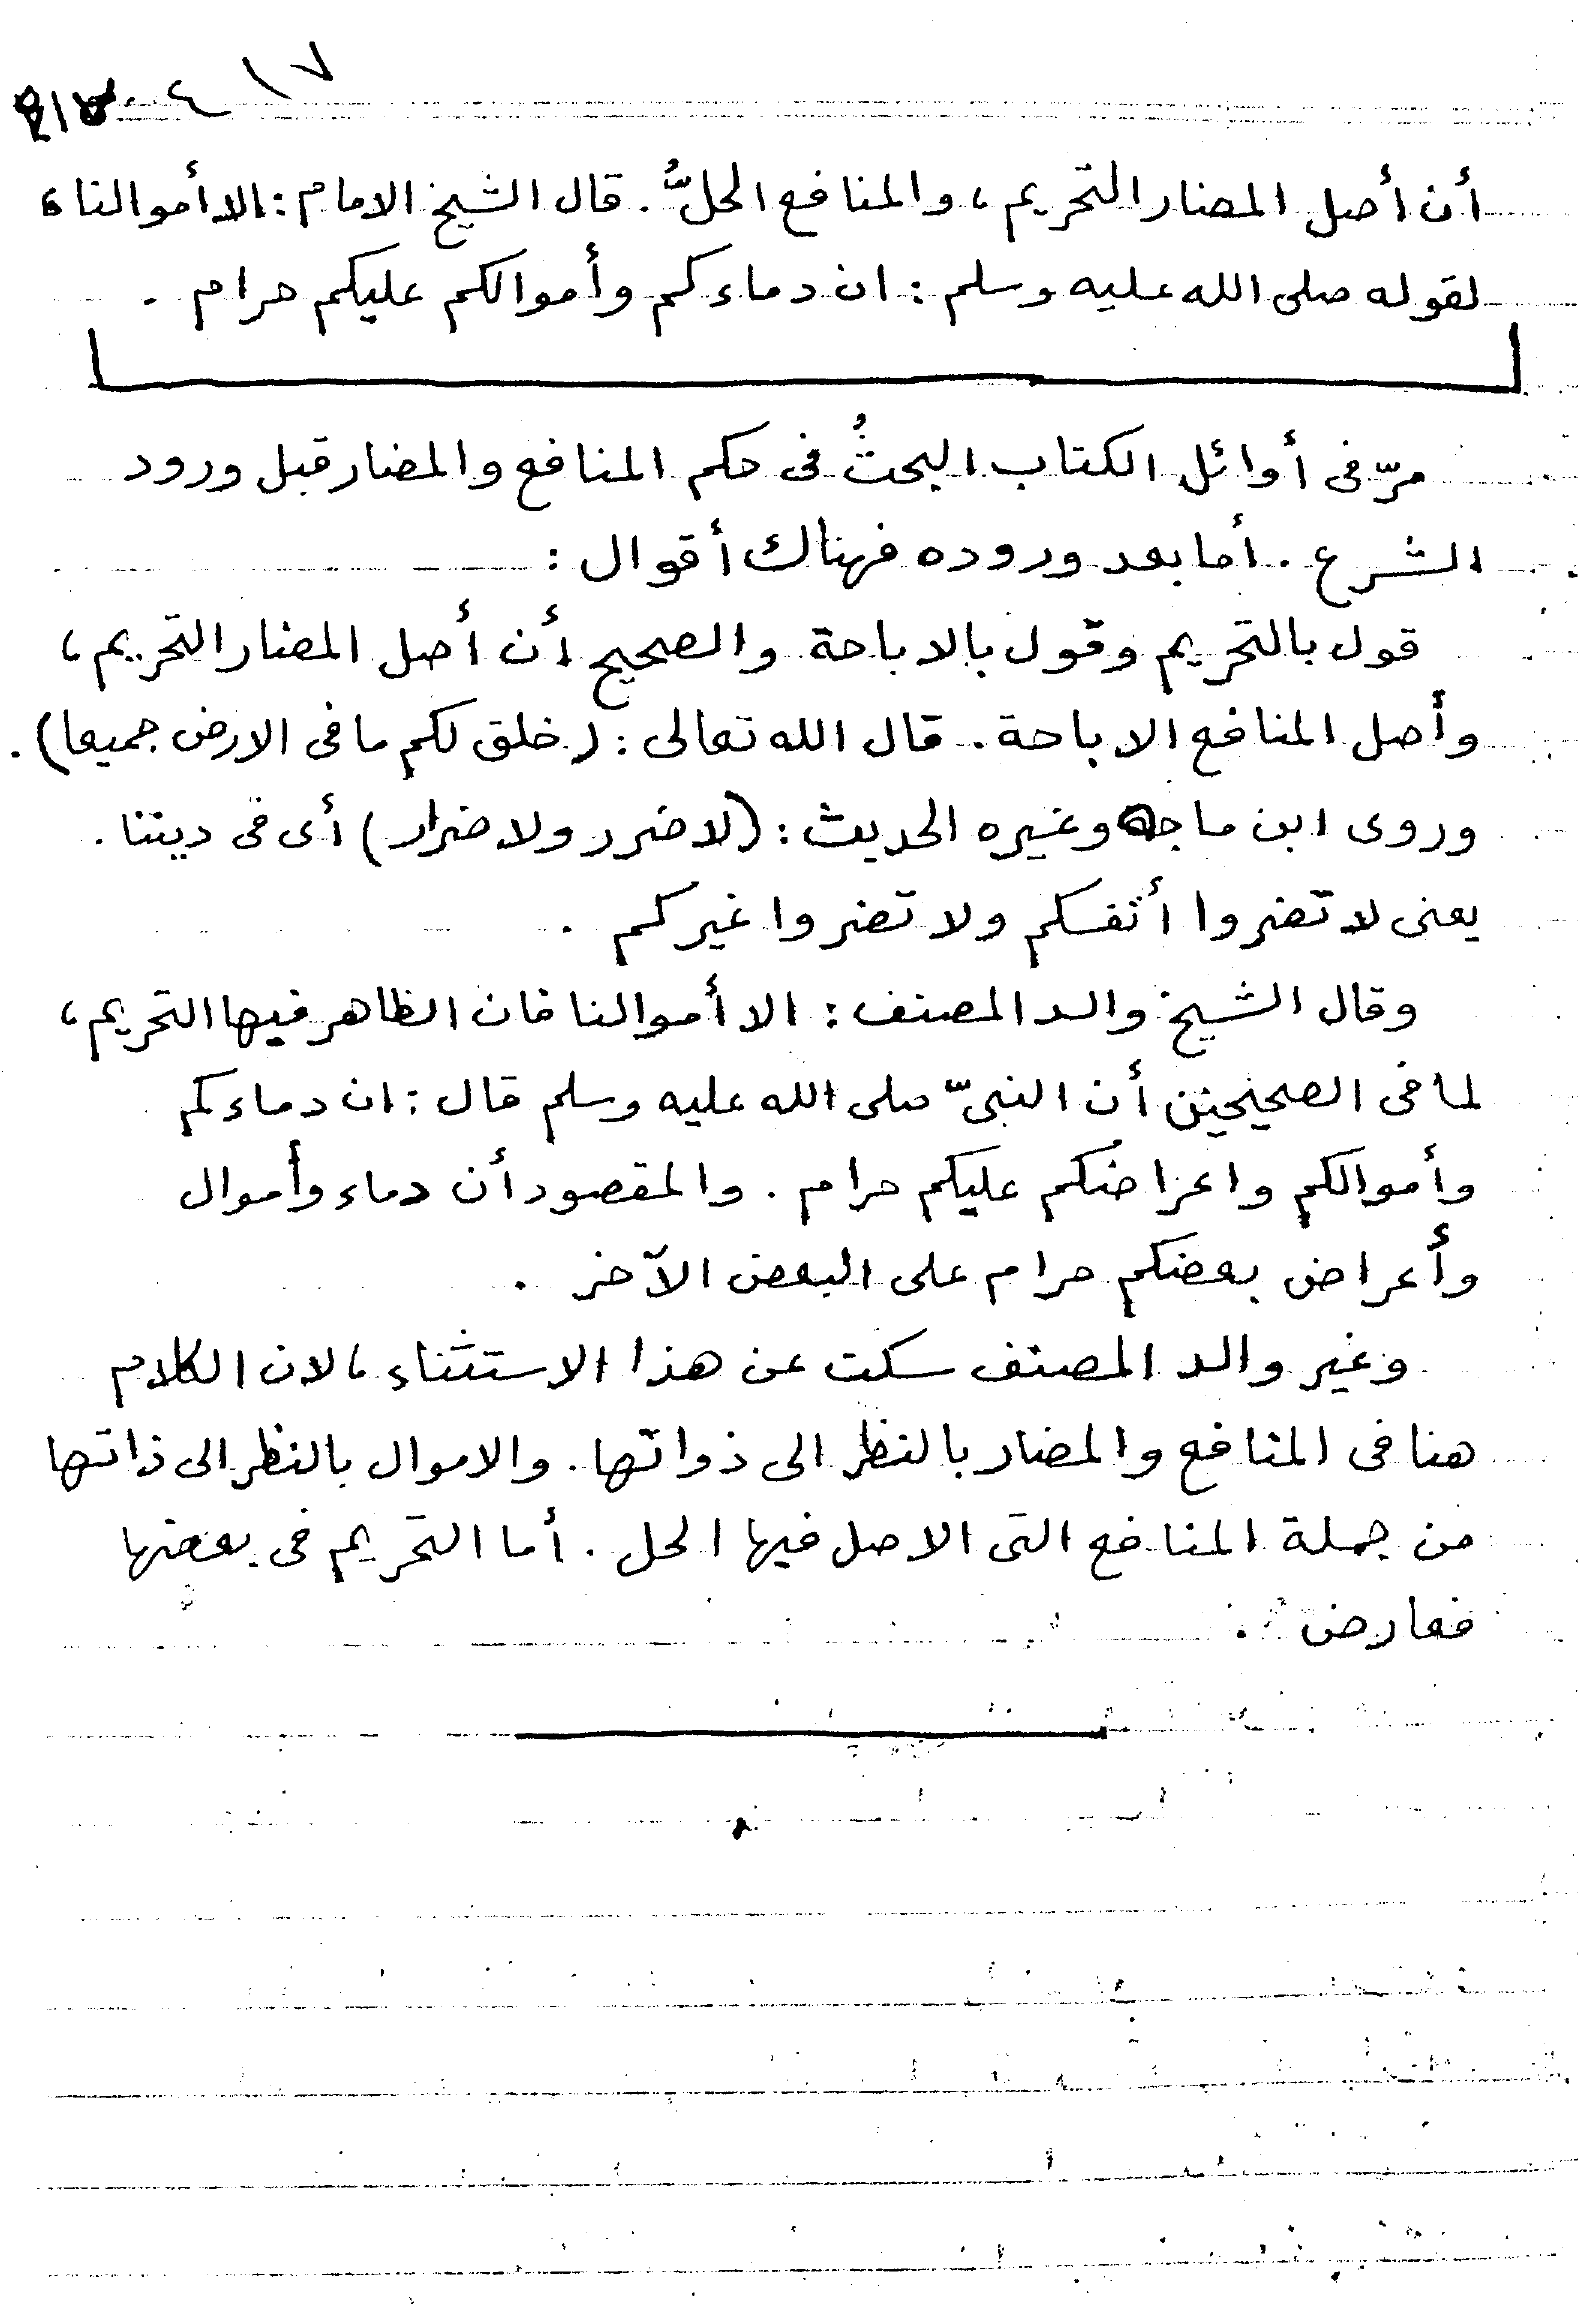 أن أصل المضار التحريم، والمنافع الحلُّ. قال الشيخ الامام: الا أموالنا،
لقوله صلى الله عليه وسلم: ان دماءكم وأموالكم عليكم حرام.
مرّ فى أوائل الكتاب البحثُ فى حكم المنافع والمضار قبل ورود
الشرع. أما بعد وروده فهناك أقوال:
قول بالتحريم وقول بالاباحة والصحيح أن أصل المضار التحريم،
وأصل المنافع الاباحة. قال الله تعالى: (خلق لكم ما فى الارض جميعا).
وروى ابن ماجه وغيره الحديث: (لا ضرر ولا ضرار) أى فى ديننا.
يعنى لا تضروا أنفسكم ولا تضروا غيركم.
وقال الشيخ والد المصنف: الا أموالنا فان الظاهر فيها التحريم،
لما فى الصحيحين أن النبىّ صلى الله عليه وسلم قال: ان دماءكم
وأموالكم واعراضكم عليكم حرام. والمقصود أن دماء وأموال
وأعراض بعضكم حرام على البعض الآخر.
وغير والد المصنف سكت عن هذا الاستثناء، لان الكلام
هنا فى المنافع والمضار بالنظر الى ذواتها. والاموال بالنظر الى ذاتها
من جملة المنافع التى الاصل فيها الحل. أما التحريم فى بعضها
فعارض.